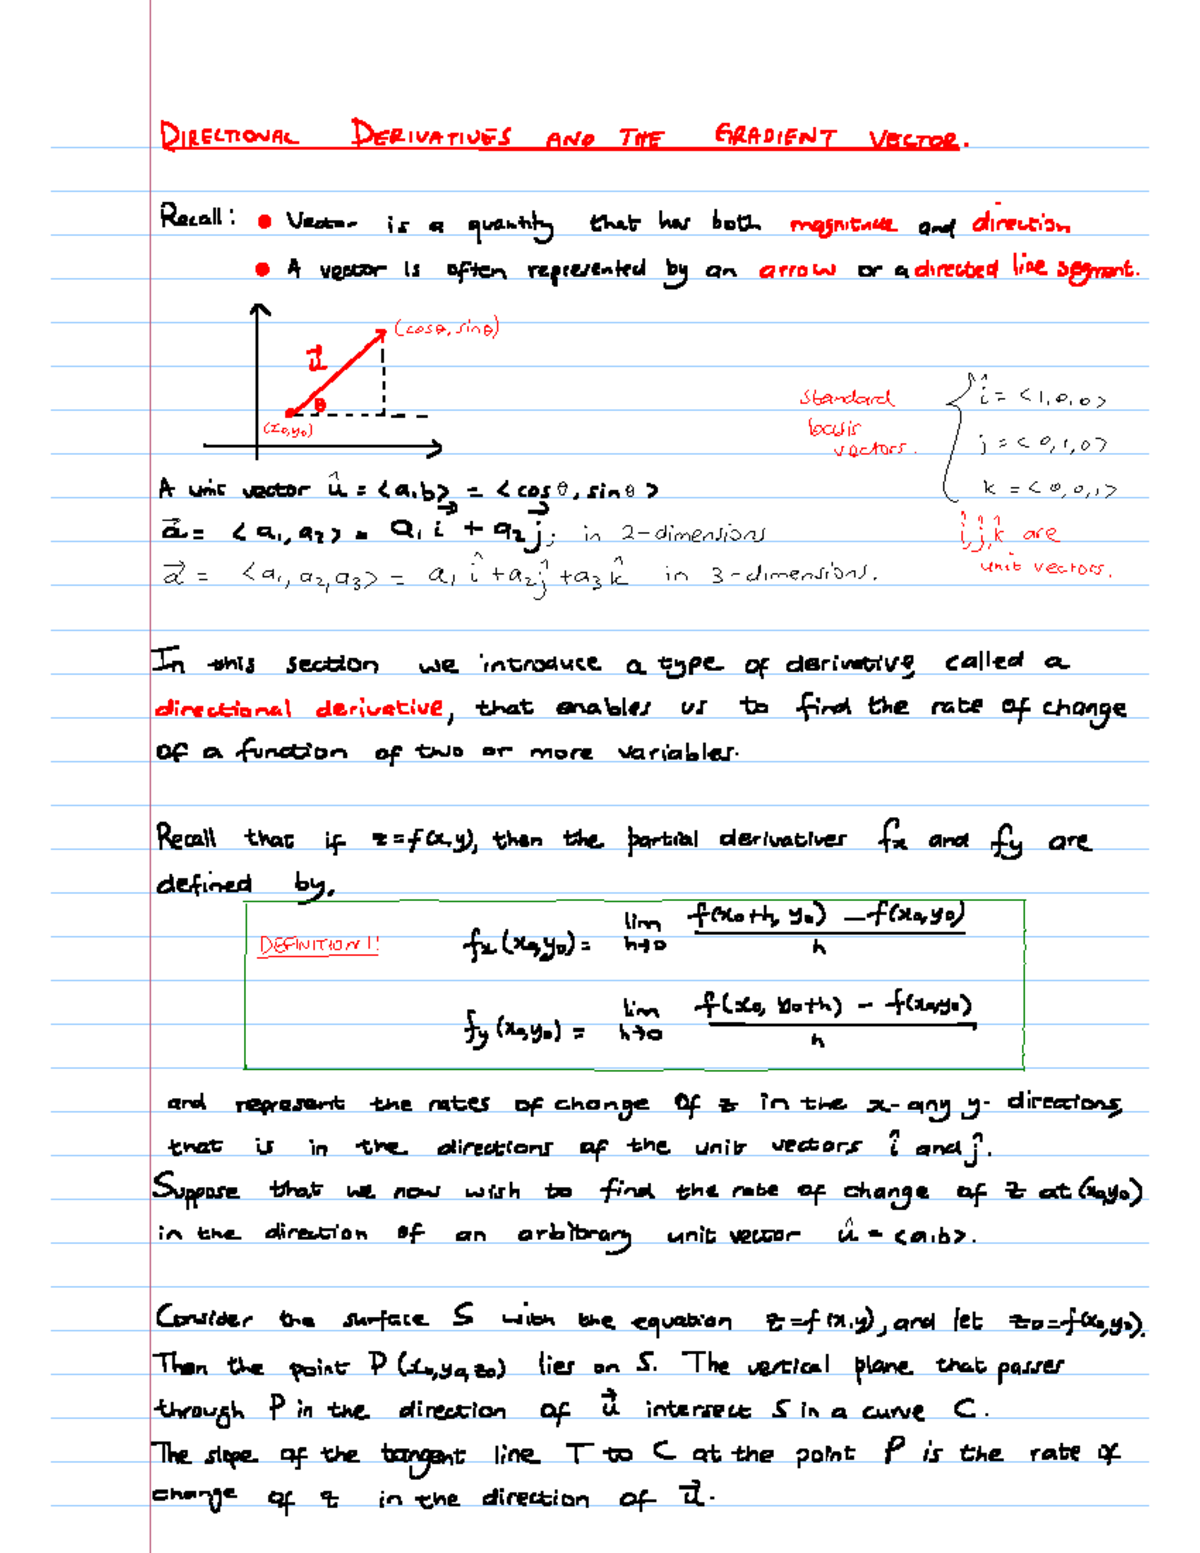 DIRECTIONAL DERIVATIVES AND THE GRADIENT VECTOR.
Recall: • Vector is a quantity that has both magnitude and direction
• A vector is often represented by an arrow or a directed line segment.
(cosθ, sinθ)
u⃗
θ
(x₀,y₀)
standard basis vectors.
î = <1,0,0>
j = <0,1,0>
k = <0,0,1>
A unit vector û = <a,b> = <cosθ, sinθ>
a⃗ = <a₁, a₂> = a₁ i⃗ + a₂ j⃗; in 2-dimensions
î, ĵ, k̂ are
unit vectors.
a⃗ = <a₁, a₂, a₃> = a₁ î + a₂ ĵ + a₃ k̂ in 3-dimensions.
In this section we introduce a type of derivative, called a
directional derivative, that enables us to find the rate of change
of a function of two or more variables.
Recall that if z=f(x,y), then the partial derivatives fx and fy are
defined by,
DEFINITION 1:
fx (x₀,y₀) = lim h→0 f(x₀+h, y₀) - f(x₀,y₀) / h
fy (x₀,y₀) = lim h→0 f(x₀, y₀+h) - f(x₀,y₀) / h
and represent the rates of change of z in the x- any y- directions,
that is in the directions of the unit vectors î and ĵ.
Suppose that we now wish to find the rate of change of z at (x₀,y₀)
in the direction of an arbitrary unit vector û = <a,b>.
Consider the surface S with the equation z=f(x,y), and let z₀=f(x₀,y₀).
Then the point P(x₀,y₀,z₀) lies on S. The vertical plane that passes
through P in the direction of u⃗ intersect S in a curve C.
The slope of the tangent line T to C at the point P is the rate of
change of z in the direction of u⃗.